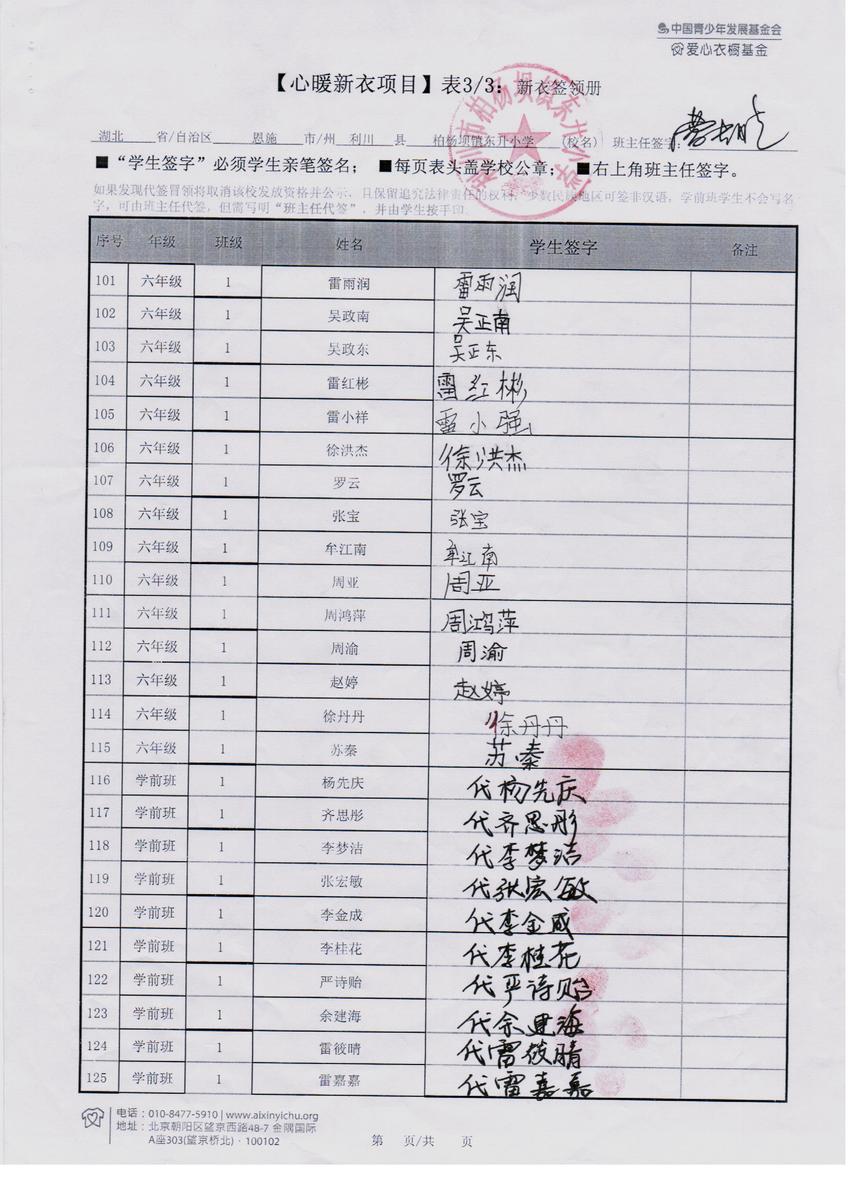 中国青少年发展基金会
爱心衣橱基金
【心暖新衣项目】表3/3：新衣签领册
湖北 省/自治区 恩施 市/州 利川 县 柏杨坝镇东升小学 （校名） 班主任签字：
利川市柏杨坝镇东升小学
■“学生签字”必须学生亲笔签名； ■每页表头盖学校公章； ■右上角班主任签字。
如果发现代签冒领将取消该校发放资格并公示，且保留追究法律责任的权利，少数民族地区可签非汉语，学前班学生不会写名
字，可由班主任代签，但需写明“班主任代签”，并由学生按手印。
序号 年级 班级 姓名 学生签字 备注
101 六年级 1 雷雨润 雷雨润
102 六年级 1 吴政南 吴正南
103 六年级 1 吴政东 吴正东
104 六年级 1 雷红彬 雷红彬
105 六年级 1 雷小祥 雷小强
106 六年级 1 徐洪杰 徐洪杰
107 六年级 1 罗云 罗云
108 六年级 1 张宝 张宝
109 六年级 1 牟江南 牟江南
110 六年级 1 周亚 周亚
111 六年级 1 周鸿萍 周鸿萍
112 六年级 1 周渝 周渝
113 六年级 1 赵婷 赵婷
114 六年级 1 徐丹丹 徐丹丹
115 六年级 1 苏秦 苏嗪
116 学前班 1 杨先庆 代杨先庆
117 学前班 1 齐思彤 代齐思彤
118 学前班 1 李梦洁 代李梦洁
119 学前班 1 张宏敏 代张宏敏
120 学前班 1 李金成 代李金成
121 学前班 1 李桂花 代李桂花
122 学前班 1 严诗贻 代严诗贻
123 学前班 1 余建海 代余建海
124 学前班 1 雷筱晴 代雷筱晴
125 学前班 1 雷嘉嘉 代雷嘉嘉
电话：010-8477-5910 | www.aixinyichu.org
地址：北京朝阳区望京西路48-7 金隅国际
A座303(望京桥北)·100102
第 页/共 页